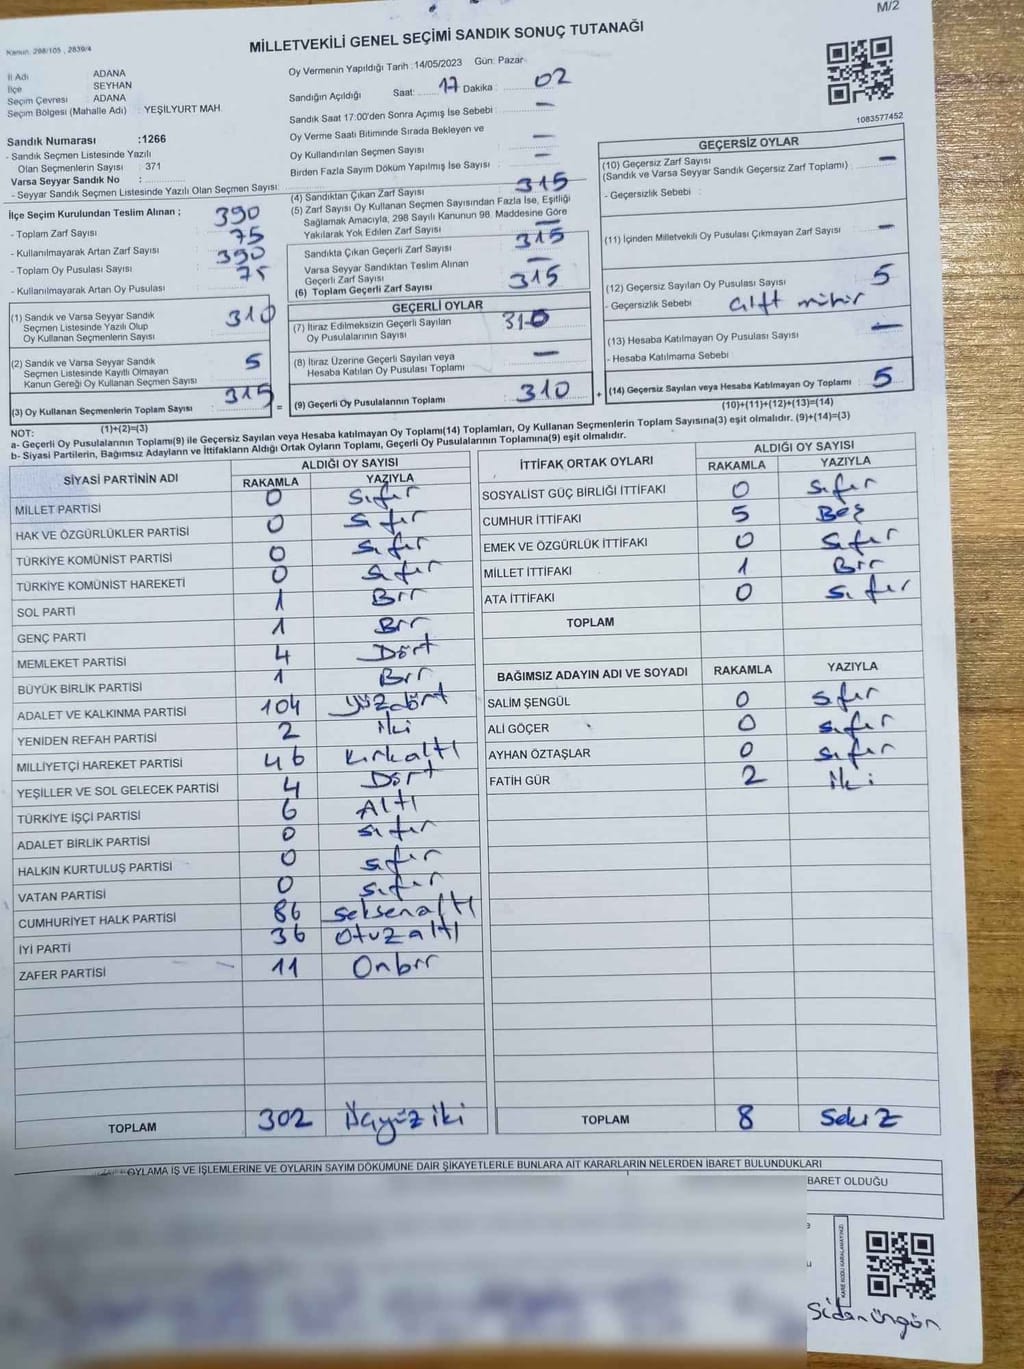 M/2
Kanun: 298/105 , 2839/4
MİLLETVEKİLİ GENEL SEÇİMİ SANDIK SONUÇ TUTANAĞI
İl Adı ADANA
İlçe SEYHAN
Seçim Çevresi ADANA
Seçim Bölgesi (Mahalle Adı) : YEŞİLYURT MAH.
Sandık Numarası :1266
- Sandık Seçmen Listesinde Yazılı
Olan Seçmenlerin Sayısı : 371
Varsa Seyyar Sandık No :
- Seyyar Sandık Seçmen Listesinde Yazılı Olan Seçmen Sayısı:
Oy Vermenin Yapıldığı Tarih :14/05/2023 Gün: Pazar
Sandığın Açıldığı Saat: 17 Dakika : 02
Sandık Saat 17:00'den Sonra Açımış İse Sebebi : —
Oy Verme Saati Bitiminde Sırada Bekleyen ve
Oy Kullandırılan Seçmen Sayısı : —
Birden Fazla Sayım Döküm Yapılmış İse Sayısı : —
1083577452
İlçe Seçim Kurulundan Teslim Alınan ;
- Toplam Zarf Sayısı : 390
- Kullanılmayarak Artan Zarf Sayısı : 75
- Toplam Oy Pusulası Sayısı : 390
- Kullanılmayarak Artan Oy Pusulası : 75
(1) Sandık ve Varsa Seyyar Sandık
Seçmen Listesinde Yazılı Olup
Oy Kullanan Seçmenlerin Sayısı : 310
(2) Sandık ve Varsa Seyyar Sandık
Seçmen Listesinde Kayıtlı Olmayan
Kanun Gereği Oy Kullanan Seçmen Sayısı : 5
(3) Oy Kullanan Seçmenlerin Toplam Sayısı : 315
(1)+(2)=(3)
(4) Sandıktan Çıkan Zarf Sayısı : 315
(5) Zarf Sayısı Oy Kullanan Seçmen Sayısından Fazla İse, Eşitliği
Sağlamak Amacıyla, 298 Sayılı Kanunun 98. Maddesine Göre
Yakılarak Yok Edilen Zarf Sayısı : —
Sandıkta Çıkan Geçerli Zarf Sayısı : 315
Varsa Seyyar Sandıktan Teslim Alınan
Geçerli Zarf Sayısı : —
(6) Toplam Geçerli Zarf Sayısı : 315
GEÇERLİ OYLAR
(7) İtiraz Edilmeksizin Geçerli Sayılan
Oy Pusulalarının Sayısı : 310
(8) İtiraz Üzerine Geçerli Sayılan veya
Hesaba Katılan Oy Pusulası Toplamı : —
(9) Geçerli Oy Pusulalarının Toplamı : 310
GEÇERSİZ OYLAR
(10) Geçersiz Zarf Sayısı
(Sandık ve Varsa Seyyar Sandık Geçersiz Zarf Toplamı) : —
- Geçersizlik Sebebi :
(11) İçinden Milletvekili Oy Pusulası Çıkmayan Zarf Sayısı : —
(12) Geçersiz Sayılan Oy Pusulası Sayısı : 5
- Geçersizlik Sebebi : çift mühür
(13) Hesaba Katılmayan Oy Pusulası Sayısı : —
- Hesaba Katılmama Sebebi :
(14) Geçersiz Sayılan veya Hesaba Katılmayan Oy Toplamı : 5
(10)+(11)+(12)+(13)=(14)
NOT:
a- Geçerli Oy Pusulalarının Toplamı(9) ile Geçersiz Sayılan veya Hesaba katılmayan Oy Toplamı(14) Toplamları, Oy Kullanan Seçmenlerin Toplam Sayısına(3) eşit olmalıdır. (9)+(14)=(3)
b- Siyasi Partilerin, Bağımsız Adayların ve İttifakların Aldığı Ortak Oyların Toplamı, Geçerli Oy Pusulalarının Toplamına(9) eşit olmalıdır.
SİYASİ PARTİNİN ADI ALDIĞI OY SAYISI
RAKAMLA YAZIYLA
MİLLET PARTİSİ 0 Sıfır
HAK VE ÖZGÜRLÜKLER PARTİSİ 0 Sıfır
TÜRKİYE KOMÜNİST PARTİSİ 0 Sıfır
TÜRKİYE KOMÜNİST HAREKETİ 0 Sıfır
SOL PARTİ 1 Bir
GENÇ PARTİ 1 Bir
MEMLEKET PARTİSİ 4 Dört
BÜYÜK BİRLİK PARTİSİ 1 Bir
ADALET VE KALKINMA PARTİSİ 104 yüzdört
YENİDEN REFAH PARTİSİ 2 iki
MİLLİYETÇİ HAREKET PARTİSİ 46 Kırkaltı
YEŞİLLER VE SOL GELECEK PARTİSİ 4 Dört
TÜRKİYE İŞÇİ PARTİSİ 6 Altı
ADALET BİRLİK PARTİSİ 0 sıfır
HALKIN KURTULUŞ PARTİSİ 0 sıfır
VATAN PARTİSİ 0 sıfır
CUMHURİYET HALK PARTİSİ 86 seksenaltı
İYİ PARTİ 36 otuzaltı
ZAFER PARTİSİ 11 Onbir
TOPLAM 302 Üçyüziki
İTTİFAK ORTAK OYLARI ALDIĞI OY SAYISI
RAKAMLA YAZIYLA
SOSYALİST GÜÇ BİRLİĞİ İTTİFAKI 0 sıfır
CUMHUR İTTİFAKI 5 Beş
EMEK VE ÖZGÜRLÜK İTTİFAKI 0 sıfır
MİLLET İTTİFAKI 1 Bir
ATA İTTİFAKI 0 sıfır
TOPLAM
BAĞIMSIZ ADAYIN ADI VE SOYADI RAKAMLA YAZIYLA
SALİM ŞENGÜL 0 sıfır
ALİ GÖÇER 0 sıfır
AYHAN ÖZTAŞLAR 0 sıfır
FATİH GÜR 2 iki
TOPLAM 8 Sekiz
OYLAMA İŞ VE İŞLEMLERİNE VE OYLARIN SAYIM DÖKÜMÜNE DAİR ŞİKAYETLERLE BUNLARA AİT KARARLARIN NELERDEN İBARET BULUNDUKLARI
BARET OLDUĞU
KARE KODU KARALAMAYINIZ!